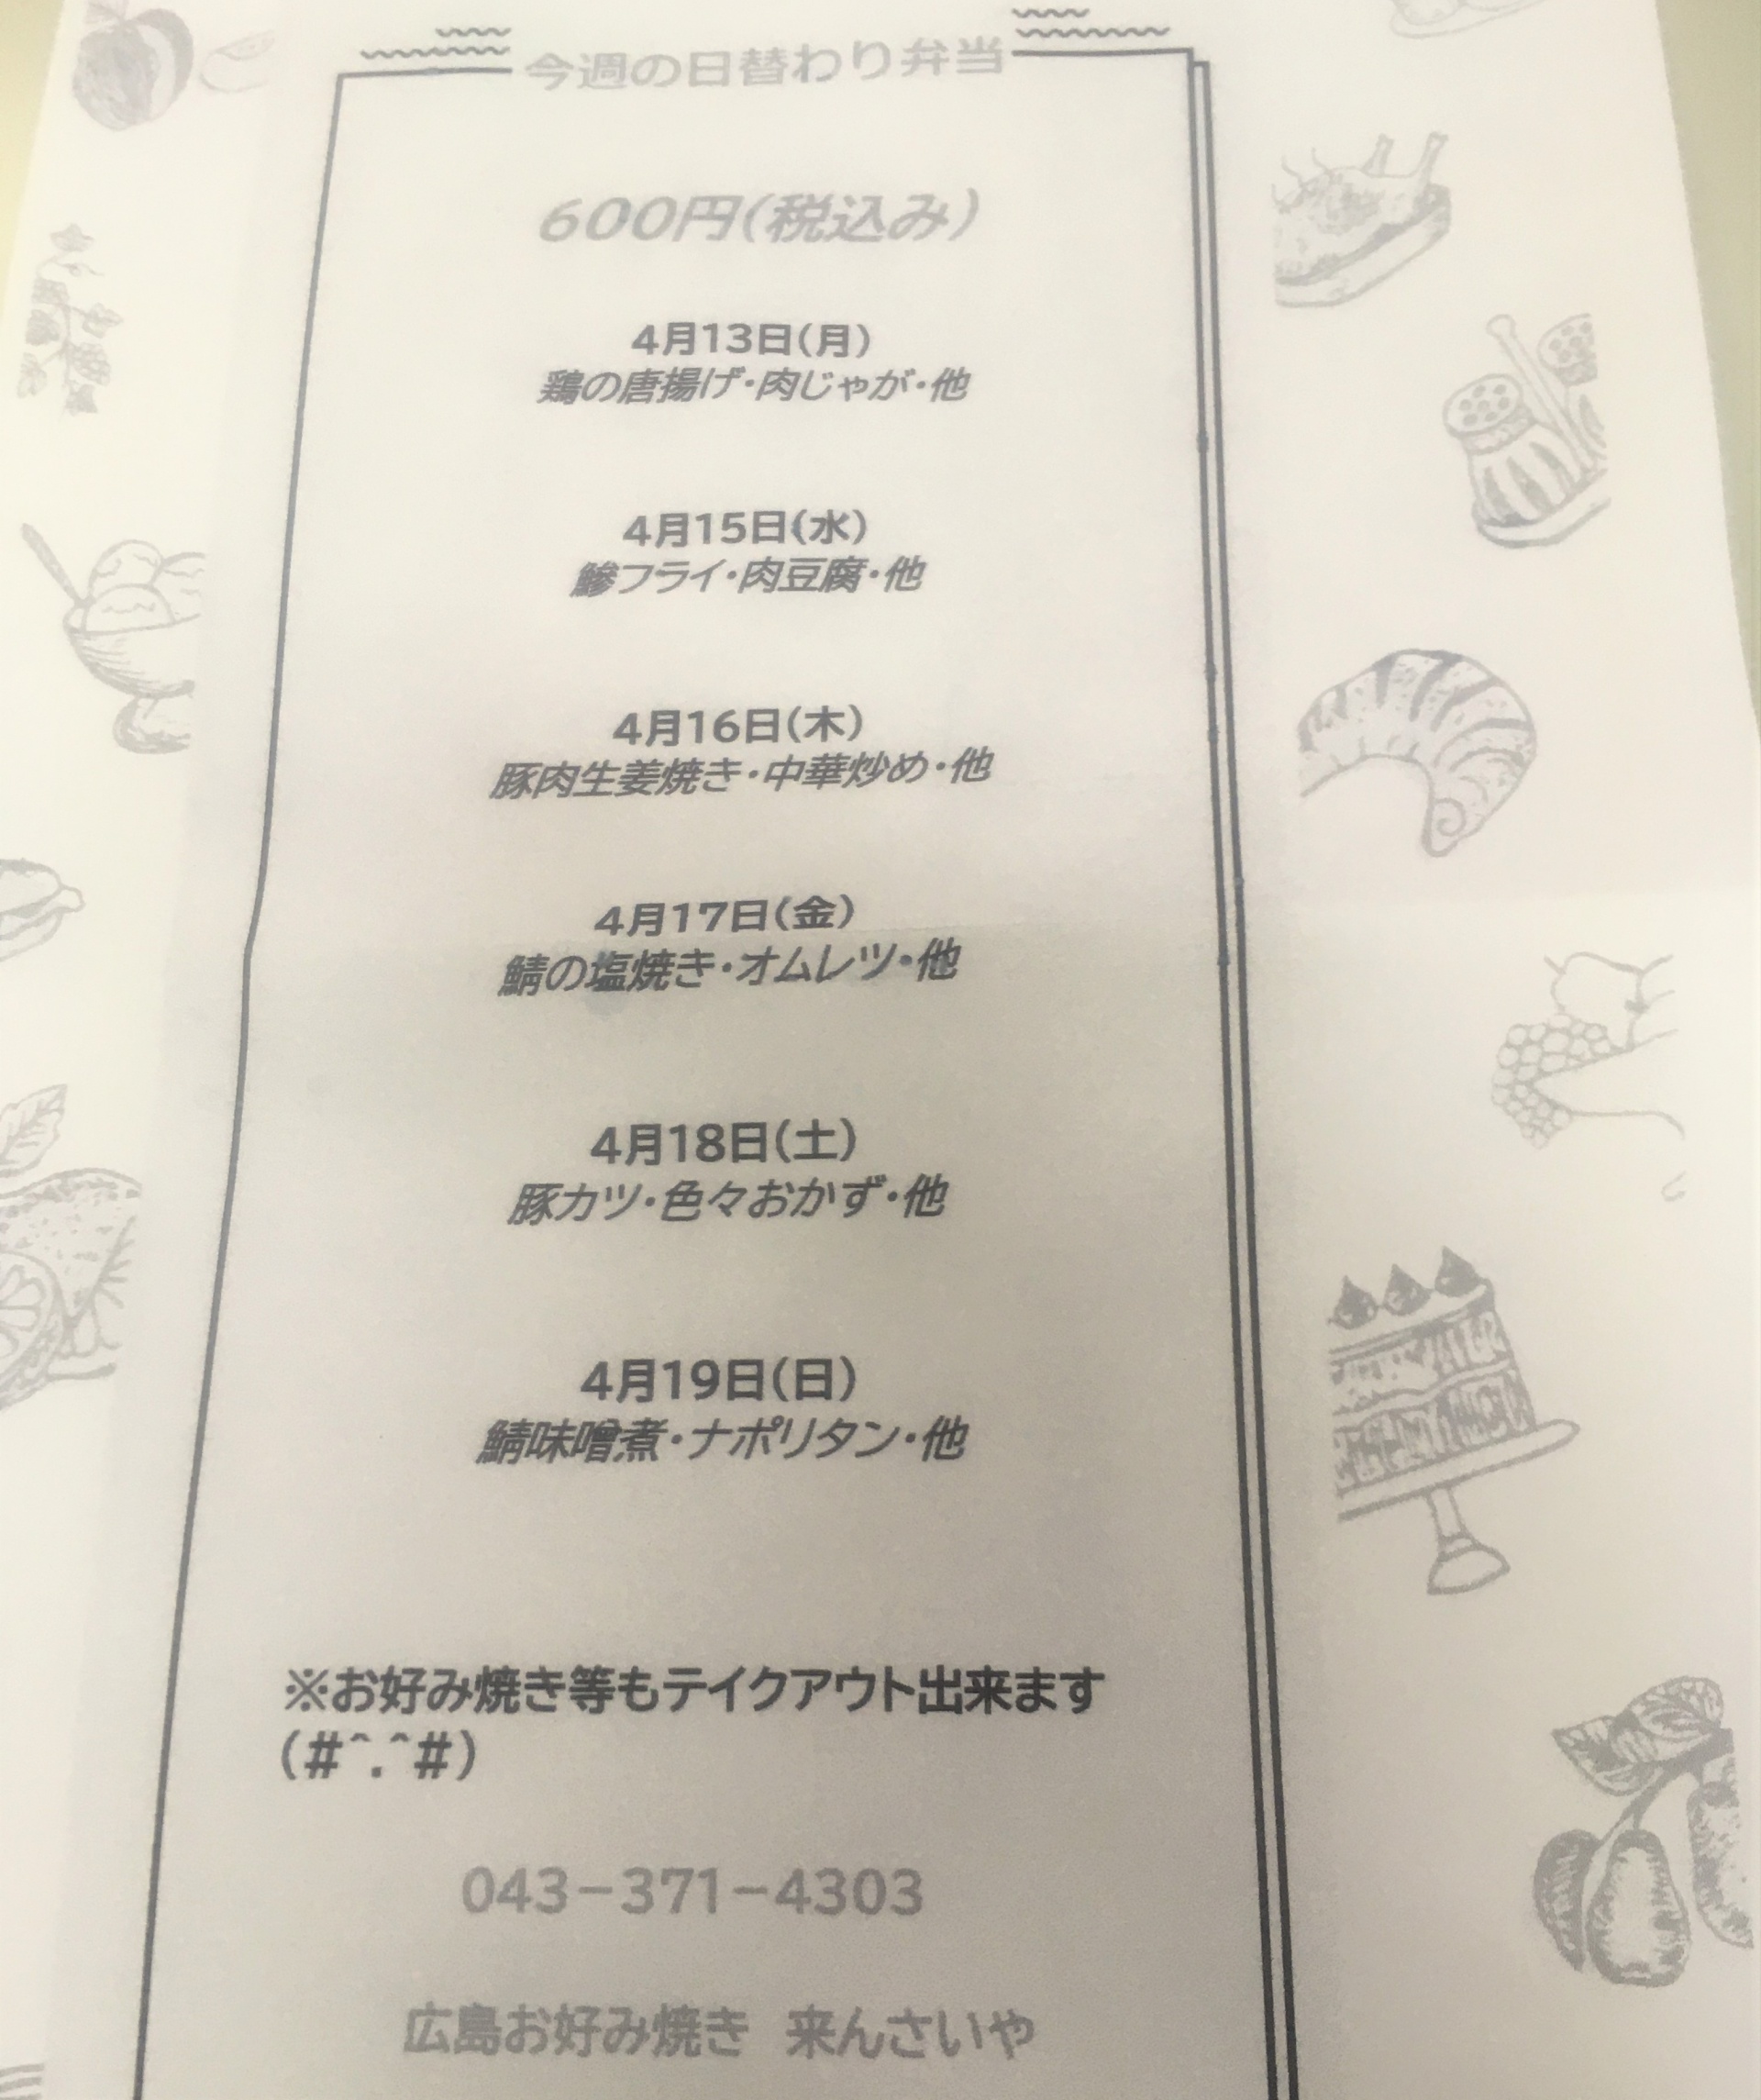 今週の日替わり弁当
600円(税込み)
4月13日(月)
鶏の唐揚げ・肉じゃが・他
4月15日(水)
鯵フライ・肉豆腐・他
4月16日(木)
豚肉生姜焼き・中華炒め・他
4月17日(金)
鯖の塩焼き・オムレツ・他
4月18日(土)
豚カツ・色々おかず・他
4月19日(日)
鯖味噌煮・ナポリタン・他
※お好み焼き等もテイクアウト出来ます
(#^.^#)
043-371-4303
広島お好み焼き 来んさいや